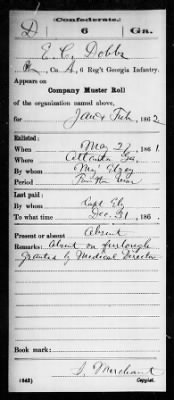 Confederate.
D 6 Ga.
E. C. Dobbs
Co. A, 6 Reg't Georgia Infantry.
Appears on
Company Muster Roll
of the organization named above,
for Jan & Feb, 1862
Enlisted:
When May 27, 1861.
Where Atlanta Ga,
By whom Maj
Period
Last paid:
By whom Capt
To what time Dec 31, 186
Present or absent Absent
Remarks: Absent on furlough
granted by Medical Director
Book mark:
S. Merchant
(642) Copyist.